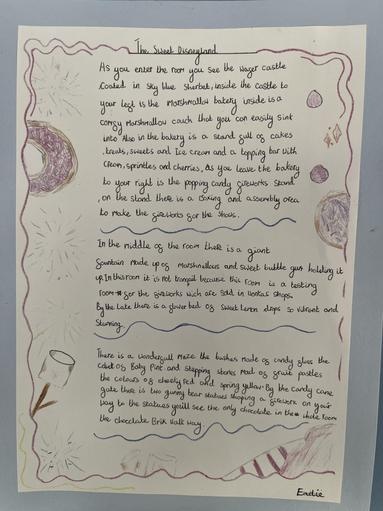 The Sweet Disneyland
As you enter the room you see the wager castle
Coated in sky blue Sherbet, inside the castle to
your left is the Marshmallow bakery inside is a
comfy Marshmallow couch that you can easily sink
into Also in the bakery is a stand full of cakes
, treats, sweets and Ice cream and a topping bar with
Cream, sprinkles and cherries, As you leave the bakery
to your right is the popping candy fireworks stand
, on the stand there is a Boxing and assembly area
to make the fireworks for the shows.
In the middle of the room there is a giant
fountain made up of Marshmallows and sweet bubble gum holding it
up. In this room it is not tranquil because this room is a testing
room for the fireworks wich are sold in shops.
By the Lake there is a flower bed of sweet Lemon drops so vibrant and
Stunning.
There is a wonderfull Maze the bushes made of candy floss the
colour of Baby Pink and stepping stones Mad of fruit pastles
the colours of red and spring yellow. By the Candy cane
gate there is two gummy bear statues shaping a firework on your
way to the statues youll see the only chocolate in the whole room
the chocolate Brik Walk way.
Eadie